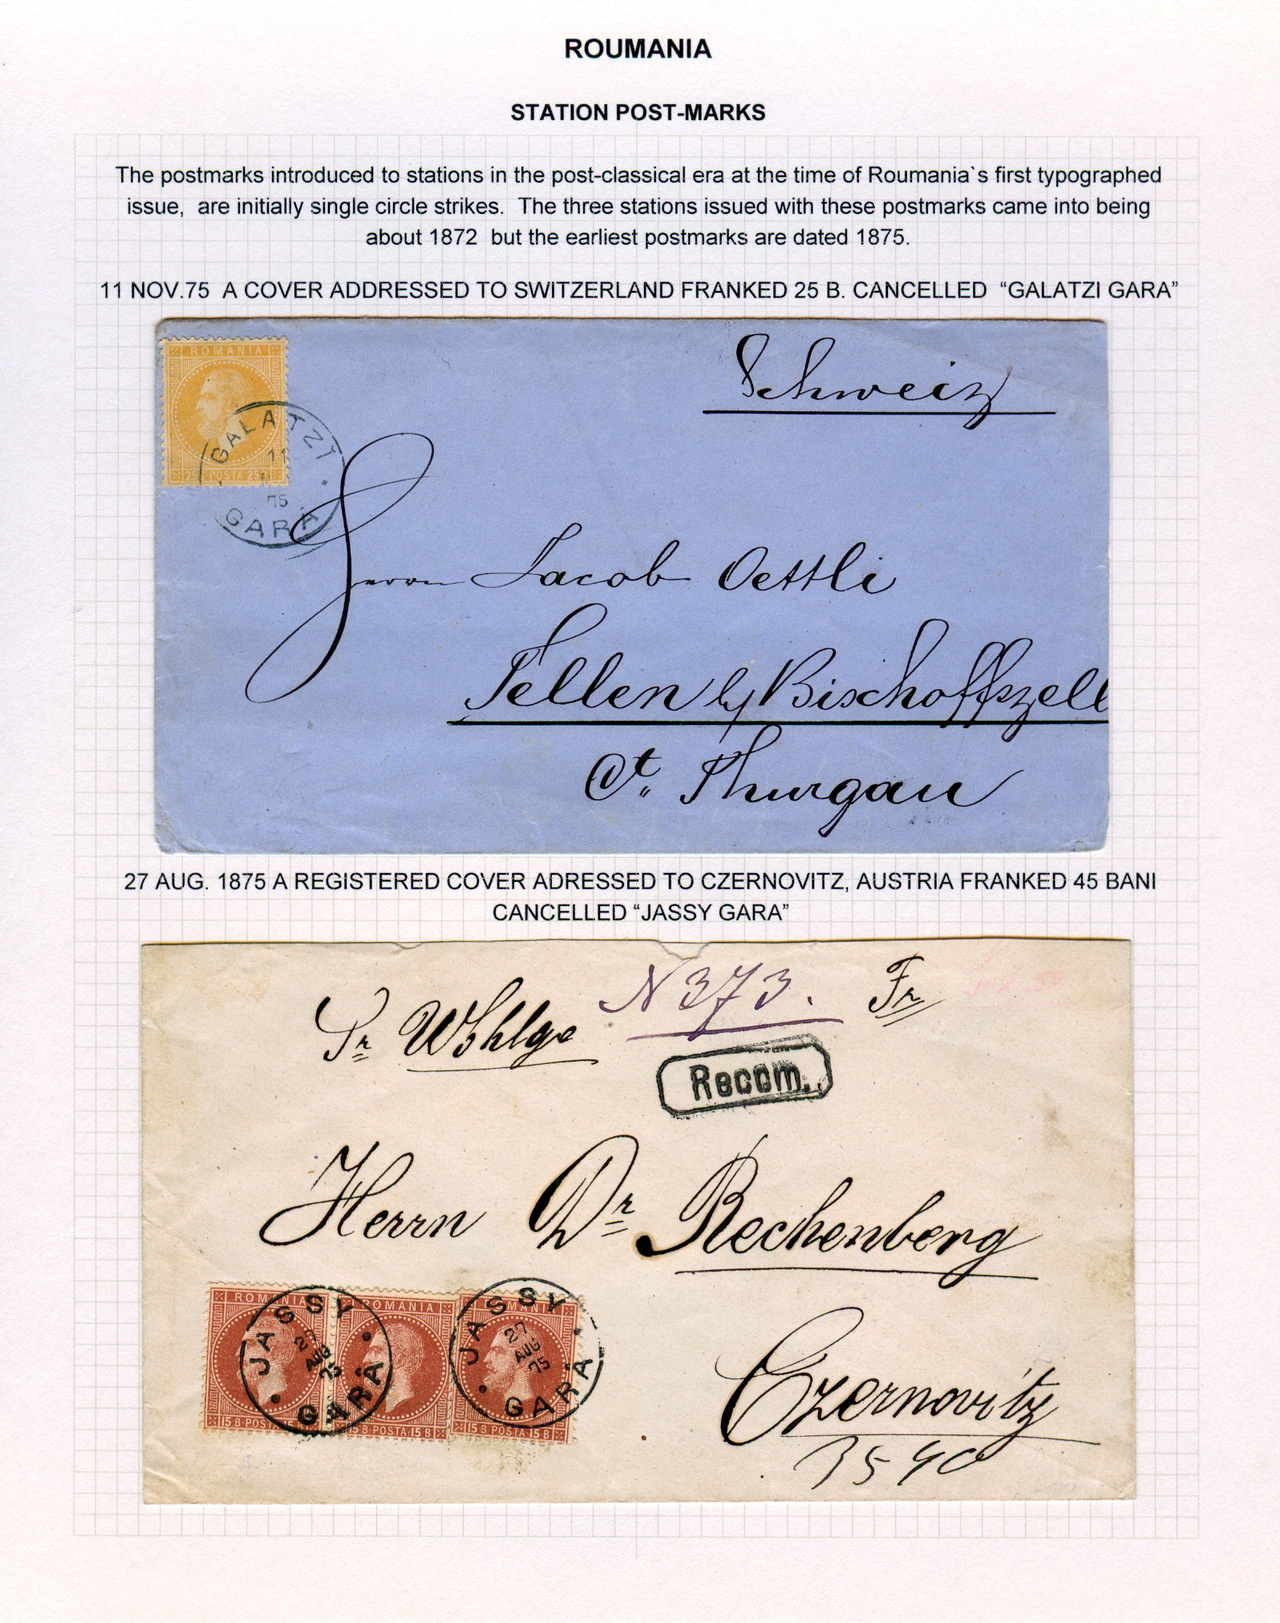 ROUMANIA
STATION POST-MARKS
The postmarks introduced to stations in the post-classical era at the time of Roumania`s first typographed
issue, are initially single circle strikes. The three stations issued with these postmarks came into being
about 1872 but the earliest postmarks are dated 1875.
11 NOV.75 A COVER ADDRESSED TO SWITZERLAND FRANKED 25 B. CANCELLED “GALATZI GARA”
ROMANIA
25 B POSTA 25 B
GALATZI
11
75
GARA
Schweiz
Herrn Jacob Oettli
Tellen b/ Bischoffszell
Ct. Thurgau
27 AUG. 1875 A REGISTERED COVER ADRESSED TO CZERNOVITZ, AUSTRIA FRANKED 45 BANI
CANCELLED “JASSY GARA”
Sr Wohlge
N 373.
Fr
Recom.
Herrn Dr Rechenberg
ROMANIA
15 B POSTA
JASSY
27
AUG
75
GARĂ
ROMANIA
15 B POSTA 15 B
ROMANIA
15 B POSTA 15 B
JASSY
27
AUG
75
GARĂ
Czernovitz